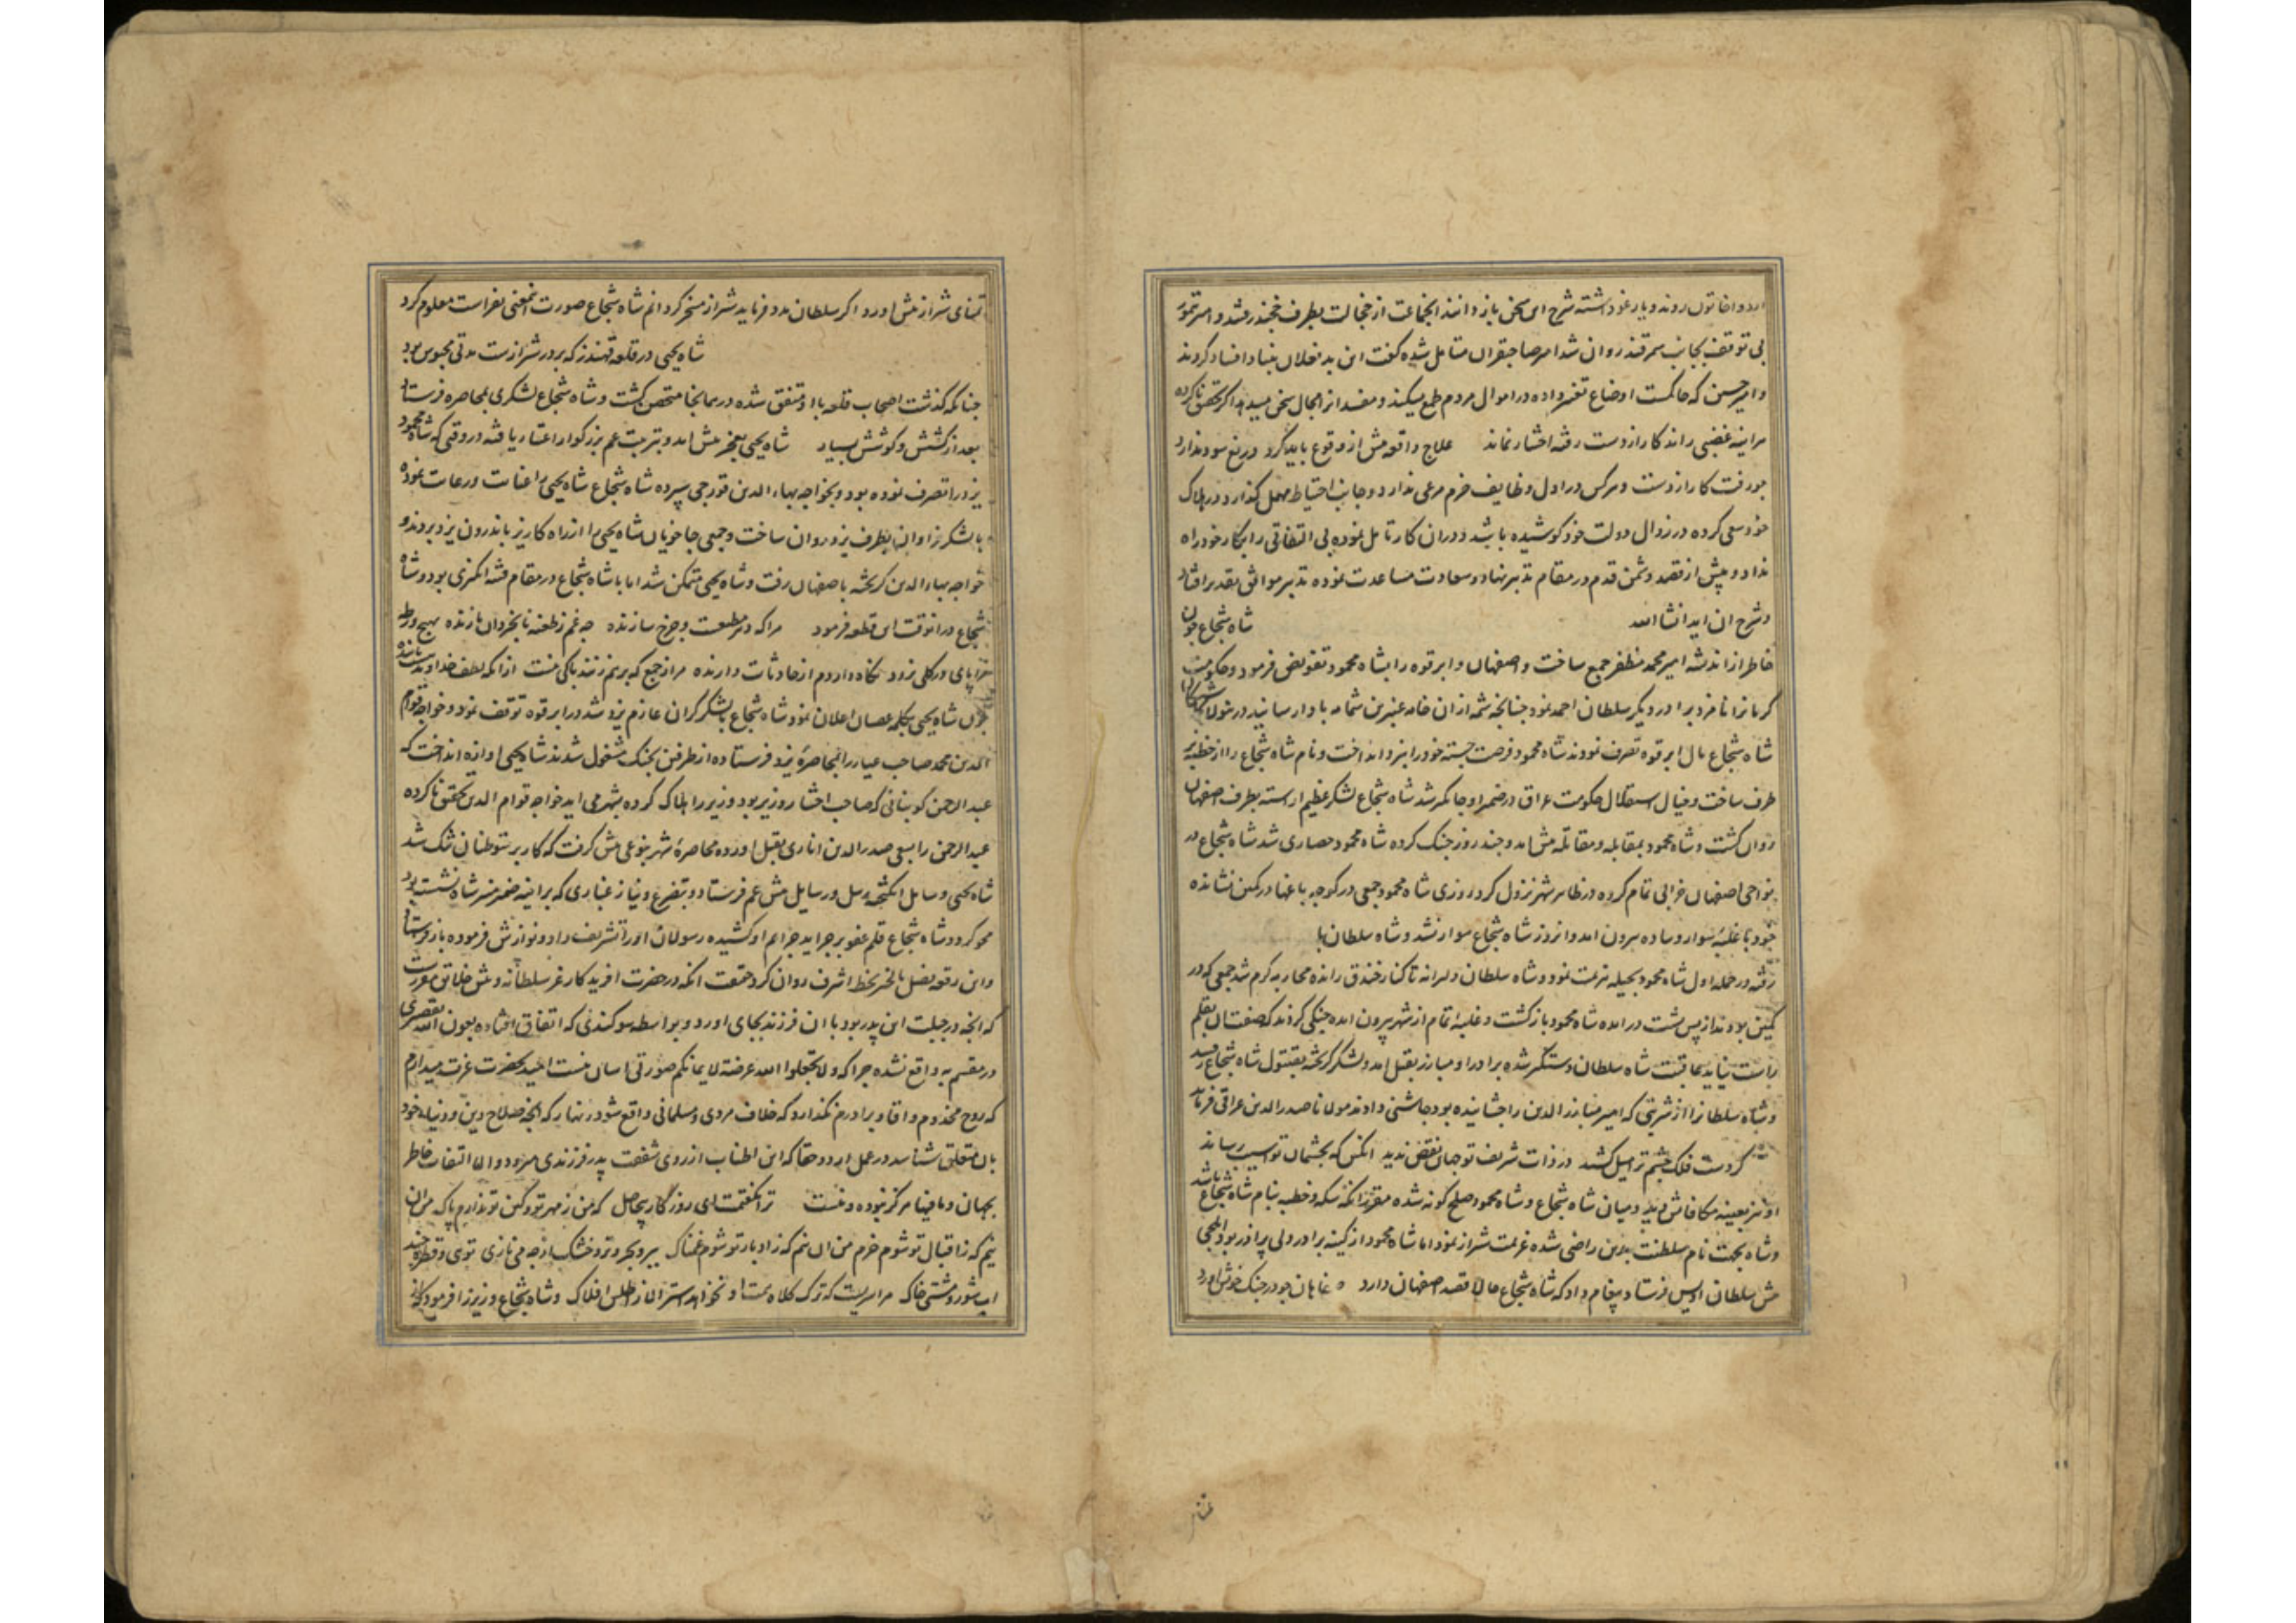 اردو اخاتون روند و یارغو داشته شرح این سخن باز دانند انجماعت از خجالت بطرف خجند رفتند و امیر تیمور
بی توقف بجانب سمرقند روان شد امیر صاحبقران متامل شده گفت این بدفعلان بنیاد افساد کردند
و امیر حسین که حاکمست اوضاع تغییر داده در اموال مردم طمع میکند و مفسد انرا مجال سخن میدهد اگر تحقیق ناکرده
هراینه غضبی راند کار از دست رفته اختیار نماند علاج واقعه پیش از وقوع باید کرد دریغ سود ندارد
چو رفت کار از دست و هرکس در اول وظایف حزم مرعی ندارد و جانب احتیاط مهمل گذارد در هلاک
خود سعی کرده در زوال دولت خود کوشیده باشد دران کار تامل نموده بی التفاتی را بکار خود راه
نداد و پیش از قصد دشمن قدم در مقام تدبیر نهاد و سعادت مساعدت نموده تدبیر موافق تقدیر افتاد
و شرح ان اید انشا الله شاه شجاع چون
خاطر از اندیشه امیر محمد مظفر جمع ساخت و اصفهان و ابرقوه را بشاه محمود تفویض فرمود و حکومت
کرمانرا نامزد برادر دیگر سلطان احمد نمود چنانچه شمه از ان خامه عنبرین شمامه بادا رسانید در شوال
شاه شجاع مال ابرقوه تصرف نمودند شاه محمود فرصت جسته خود را بیزد انداخت و نام شاه شجاع را از خطبه بر
طرف ساخت و خیال استقلال حکومت عراق در ضمیر او جایگیر شد شاه شجاع لشکر عظیم اراسته بطرف اصفهان
روان گشت و شاه محمود بمقابله و مقاتله پیش امد و چند روز جنگ کرده شاه محمود حصاری شد شاه شجاع در
نواحی اصفهان خرابی تمام کرده در ظاهر شهر نزول کرد روزی شاه محمود جمعی در کوچه باغها در کمین نشانده
خود با غلبه سوار و پیاده بیرون امد و انروز شاه شجاع سوار نشد و شاه سلطان با
رفته در حمله اول شاه محمود بحیله هزیمت نمود و شاه سلطان دلیرانه تا کنار خندق رانده محاربه گرم شد جمعی که در
کمین بودند از پس پشت درامده شاه محمود بازگشت و غلبه تمام از شهر بیرون امده جنگی کردند که صفت ان بقلم
راست نیاید عاقبت شاه سلطان دستگیر شده برادر او مبارز بقتل امد و لشکر گریخته بقبتول شاه شجاع رسید
و شاه سلطانرا از شربتی که امیر مبارز الدین را چشانیده بود چاشنی دادند مولانا صدرالدین عراقی فرماید
گر دست فلک چشم ترا میل کشید در ذات شریف تو جهان نقص ندید انکس که بچشمان تو اسیب رساند
او نیز بعینه مکافاش بدید و میان شاه شجاع و شاه محمود صلح گونه شده مقرر انکه سکه و خطبه بنام شاه شجاع باشد
و شاه بجهت نام سلطنت بدین راضی شده عزیمت شیراز نمود اما شاه محمود از کینه برادر ولی پر اذر بود ایلچی
پیش سلطان اویس فرستاد و پیغام داد که شاه شجاع حالا قصد اصفهان دارد و عاهان چو در جنگ خوش اورد
تمنای شیراز پیش اورد و اگر سلطان مدد فرماید شیراز مسخر گردانم شاه شجاع صورت اینمعنی بفراست معلوم کرد
شاه یحیی در قلعه قهندز که بر در شیرازست مدتی محبوس بود
چنانکه گذشت اصحاب قلعه با او متفق شده در همانجا متحصن گشت و شاه شجاع لشکری بمحاصره فرستاد
بعد از کشش و کوشش بسیار شاه یحیی بعجز پیش امد و بتربیت عم بزرگوار اعتبار یافته در وقتی که شاه محمود
یزد را تصرف نموده بود و بخواجه بهاء الدین قورجی سپرده شاه شجاع شاه یحیی را عنایت و رعایت نموده
با لشکر فراوان بطرف یزد روان ساخت و جمعی چاخویان شاه یحیی را از راه کاریز باندرون یزد بردند و
خواجه بهاء الدین گریخته باصفهان رفت و شاه یحیی متمکن شد اما با شاه شجاع در مقام فتنه انگیزی بود و شاه
شجاع درانوقت این قطعه فرمود مرا که در مطیعست و چرخ سازنده چه غم ز طعنه نابخردان بازنده بهیچ ورطه
مرا پای در گلی نرود نگاه داردم از حادثات دارنده مرا ز جمع که برهم زنند باکی نیست ازانکه لطف خداوند هست
چون شاه یحیی بیکبار عصیان اعلان نمود شاه شجاع با لشکر گران عازم یزد شد در ابرقوه توقف نمود و خواجه قوام
الدین محمد صاحب عیار را بمحاصره یزد فرستاده از طرفین بجنگ مشغول شدند شاه یحیی اوازه انداخت که
عبدالرحمن کوبنانی که صاحب اختیار وزیر بود وزیر را هلاک کرده بشهر می اید خواجه قوام الدین تحقیق ناکرده
عبدالرحمن را بسعی صدرالدین اناری بقتل اورده محاصره شهر بنوعی پیش گرفت که کار بر متوطنان تنگ شد
شاه یحیی وسایل انگیخته رسل و رسایل پیش عم فرستاد و بتضرع و نیاز غباری که بر اینه ضمیر منیر شاه نشسته بود
محو کرد و شاه شجاع قلم عفو بر جراید جرایم او کشیده رسولان او را تشریف داد و نوازش فرموده باز فرستاد
و این رقعه بفضل بالخیر بخط اشرف روان کرد حقیقت انکه در حضرت افریدگار غر سلطانه و پیش خلایق مقررست
که انچه در جبلت این پدر بود با ان فرزند بجای اورد و بواسطه سوگندی که اتفاق افتاده بعون الله تقصیری
در مقسم به واقع نشده چرا که ولا تجعلوا الله عرضة لایمانکم صورتی اسان نیست امید بحضرت عزت میدارم
که روح مخدوم و اقا و برادرم نگذارد که خلاف مردی و مسلمانی واقع شود زنهار که انچه صلاح دین و دنیاء خود
بان متعلق شناسد در عمل ارد و حقا که این اطناب از روی شفقت پدر فرزندی میرود و الا التفات خاطر
بجهان و ما فیها هرگز نبوده و نیست ترا نگفتمت ای روزگار بیحاصل که من ز مهر تو و کین تو ندارم باک من ان
نیم که ز اقبال تو شوم خرم من ان نیم که ز ادبار تو شوم غمناک ببر و بحر و تر و خشک از چه می نازی توی و قطره چند
اب شور و مشتی خاک مرا سریست که ترک کلاه همت او نخواهد استر الا ز اطلس افلاک و شاه شجاع وزیر را فرمود که از